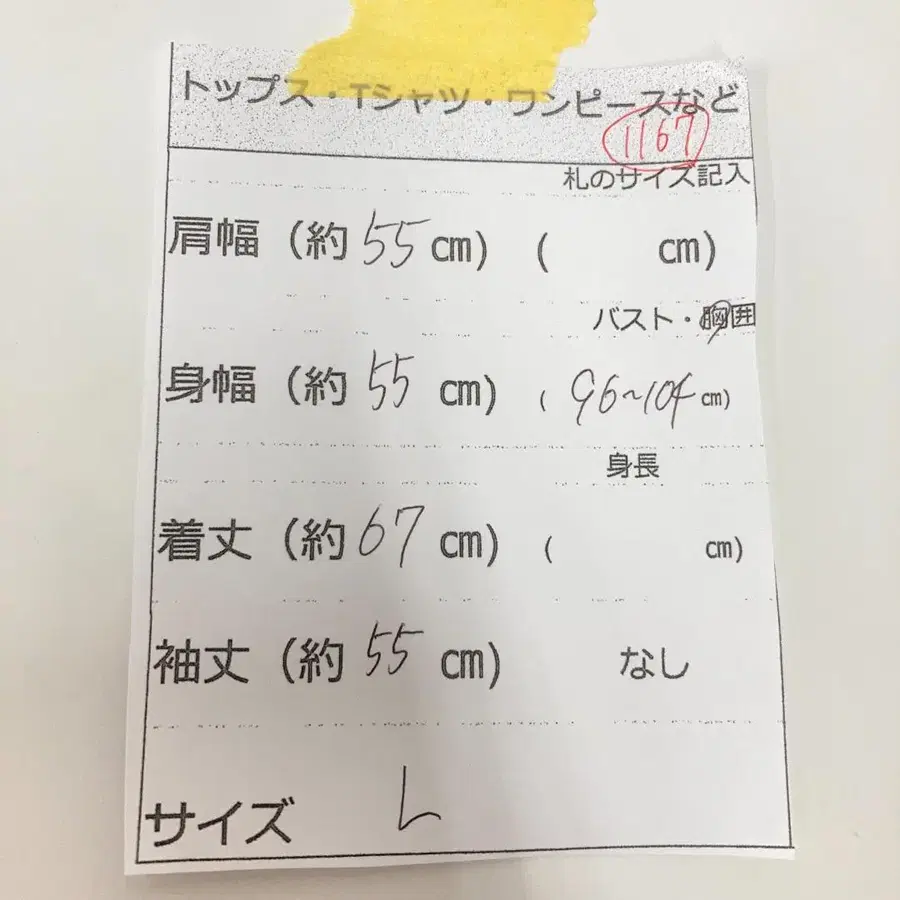 トップス・Tシャツ・ワンピースなど
1167
札のサイズ記入
肩幅（約 55 cm）（ cm）
バスト・胸囲
身幅（約 55 cm）（ 96~104 cm）
身長
着丈（約 67 cm）（ cm）
袖丈（約 55 cm） なし
サイズ L